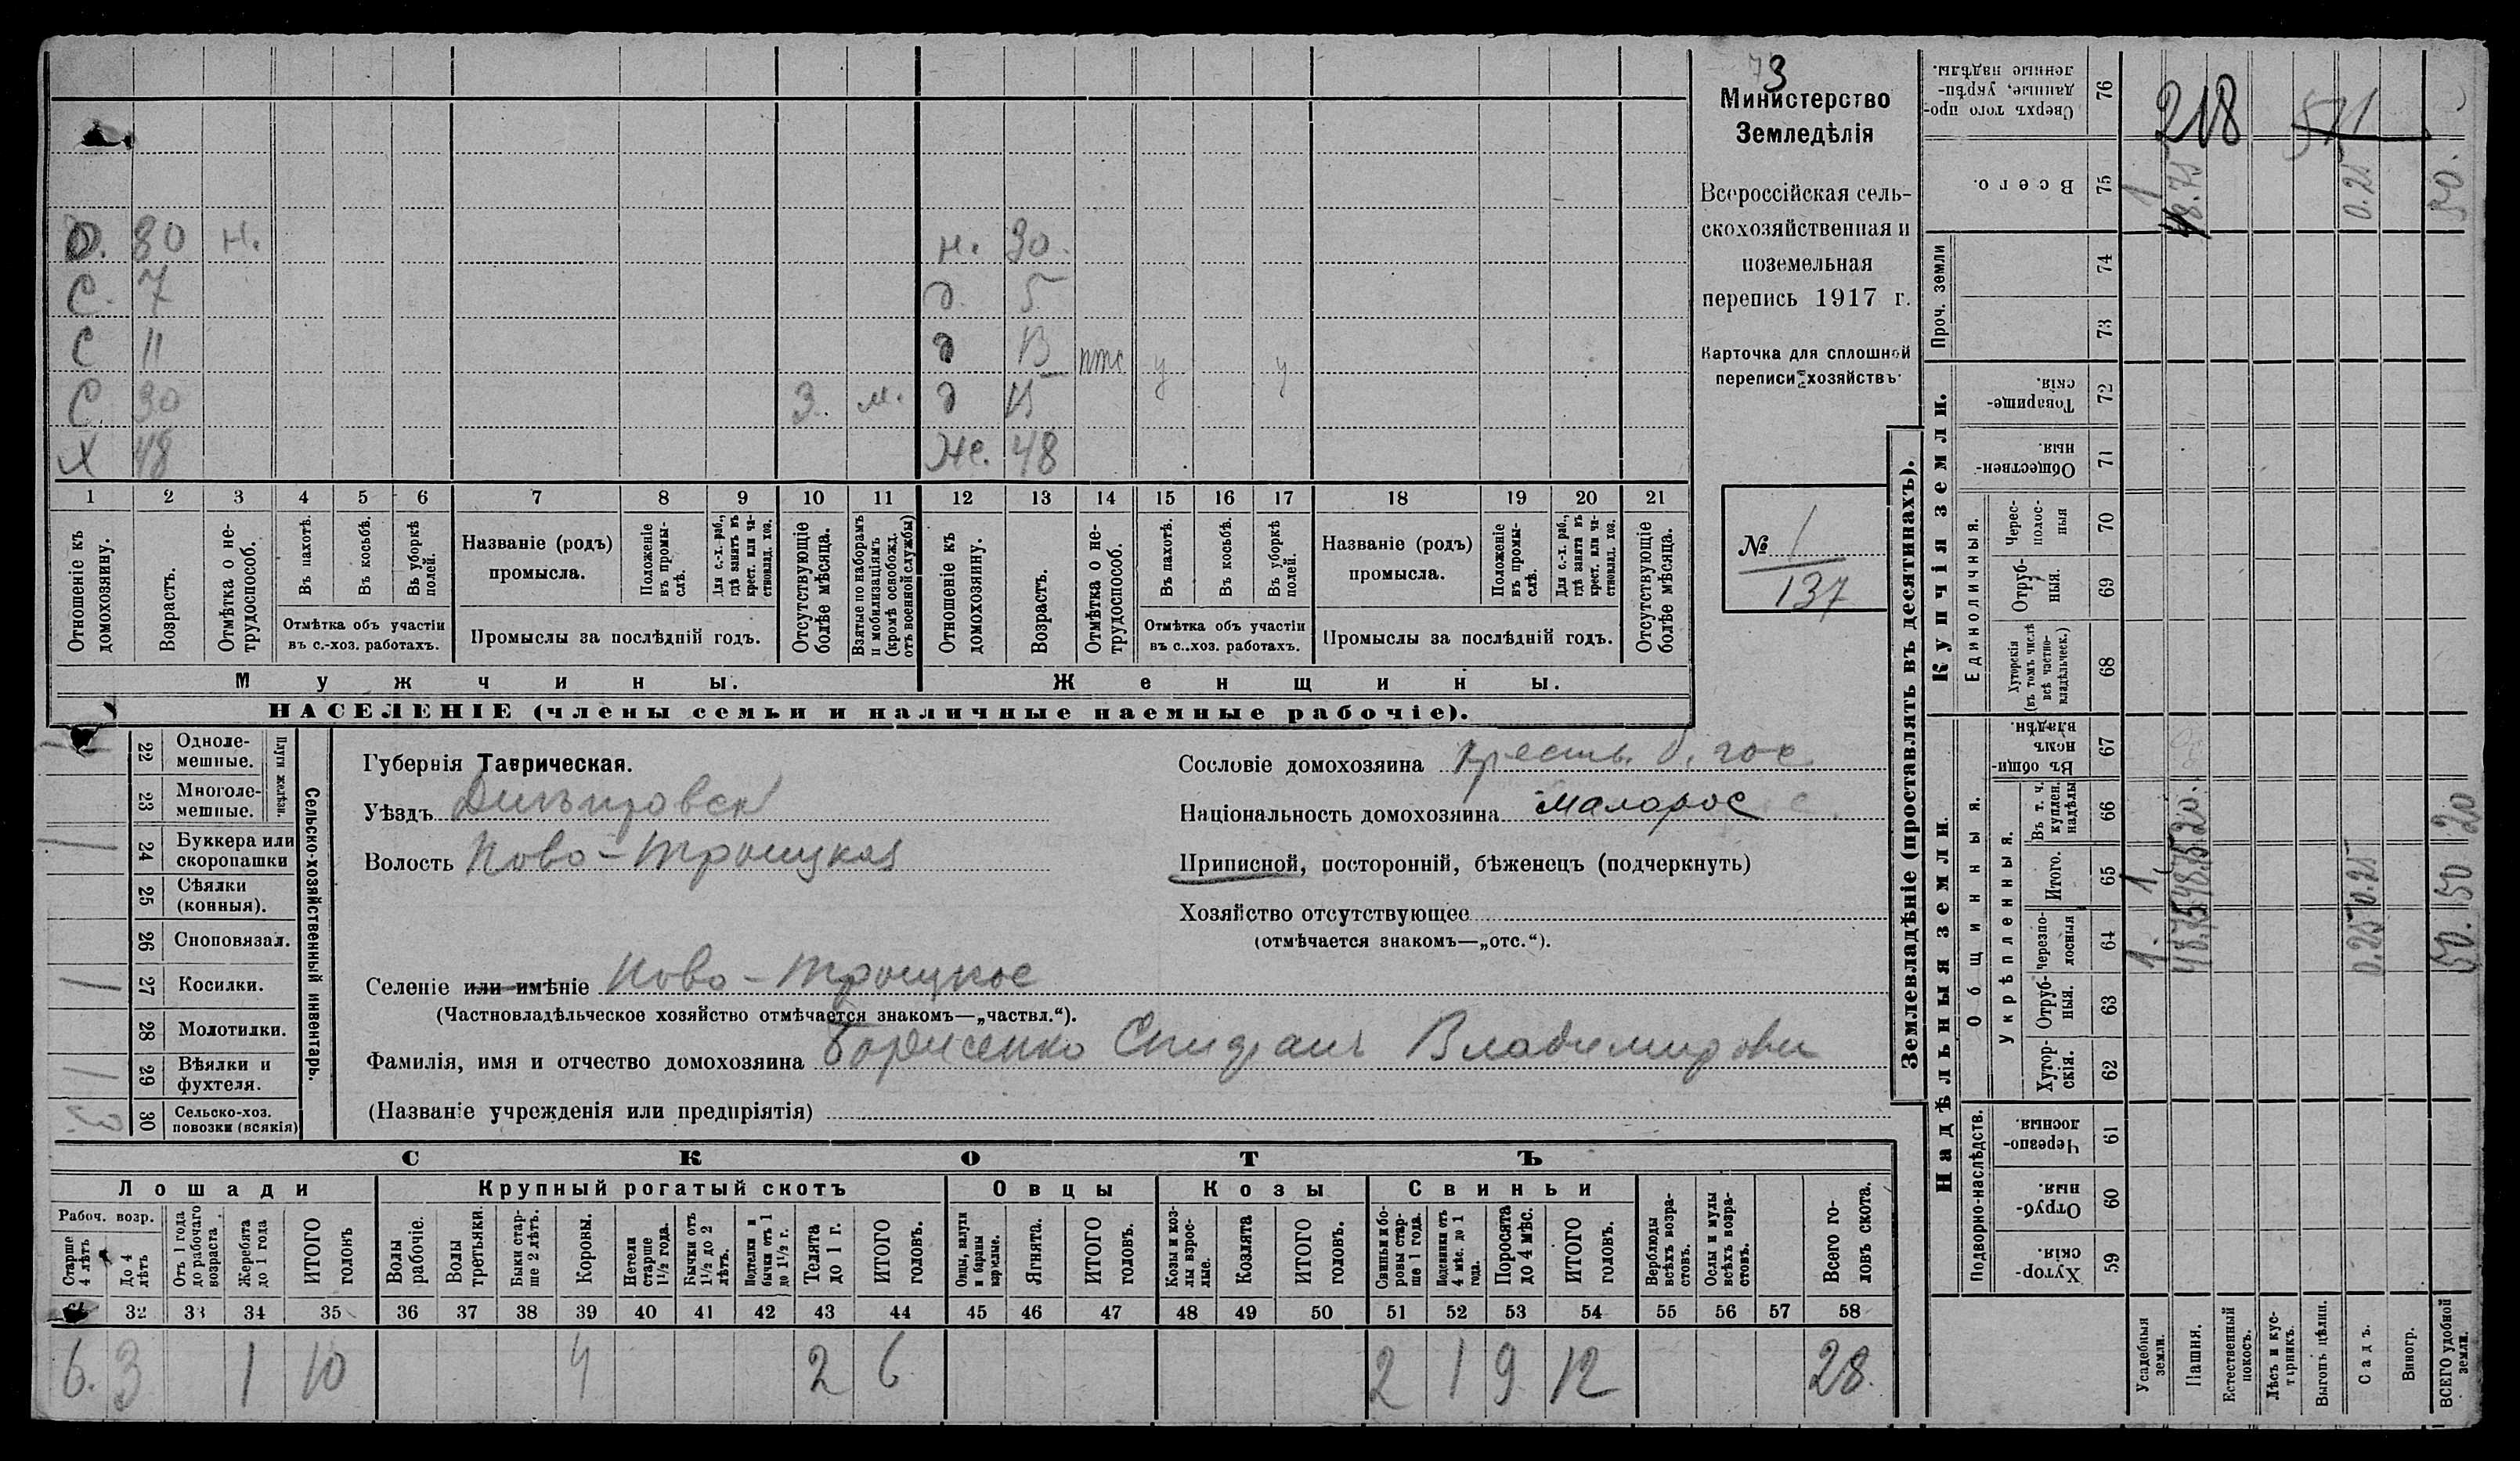 73
Министерство
Земледѣлія
Всероссійская сель-
скохозяйственная и
поземельная
перепись 1917 г.
Карточка для сплошной
переписи хозяйствъ
№ 1
137
О. 80 н. н. 30.
С. 7 д. 5
С 11 д 13 птс у у
С. 30 3. м. д
Х 48 Же. 48
1 2 3 4 5 6 7 8 9 10 11 12 13 14 15 16 17 18 19 20 21
Отношеніе къ домохозяину.
Возрастъ.
Отмѣтка о не-трудоспособ.
Въ пахотѣ.
Въ косьбѣ.
Въ уборкѣ полей.
Отмѣтка объ участіи въ с.-хоз. работахъ.
Названіе (родъ) промысла.
Положеніе въ промы-слѣ.
Для с.-х. раб., гдѣ занятъ въ крест. или ча-стновлад. хоз.
Промыслы за послѣдній годъ.
Отсутствующіе болѣе мѣсяца.
Взятые по наборамъ и мобилизаціямъ (кромѣ освобожд. отъ военной службы)
Отношеніе къ домохозяину.
Возрастъ.
Отмѣтка о не-трудоспособ.
Въ пахотѣ.
Въ косьбѣ.
Въ уборкѣ полей.
Отмѣтка объ участіи въ с..хоз. работахъ.
Названіе (родъ) промысла.
Положеніе въ промы-слѣ.
Для с.-х. раб., гдѣ занята въ крест. или ча-стновлад. хоз.
Промыслы за послѣдній годъ.
Отсутствующіе болѣе мѣсяца.
Мужчины. Женщины.
НАСЕЛЕНІЕ (члены семьи и наличные наемные рабочіе).
Сельско-хозяйственный инвентарь.
Плуги желѣзн.
22 Одноле-мешные.
23 Многоле-мешные.
24 Буккера или скоропашки
25 Сѣялки (конныя).
26 Сноповязал.
27 Косилки.
28 Молотилки.
29 Вѣялки и фухтеля.
30 Сельско-хоз. повозки (всякія)
Губернія Таврическая.
Уѣздъ Днѣпровск
Волость Ново-Троицкая
Селеніе или имѣніе Ново-Троицкое
(Частновладѣльческое хозяйство отмѣчается знакомъ—„частвл.“).
Фамилія, имя и отчество домохозяина Борисенко Спиридонъ Владимирови
(Названіе учрежденія или предпріятія)
Сословіе домохозяина крестьн. б. гос
Національность домохозяина малорос
Приписной, посторонній, бѣженецъ (подчеркнуть)
Хозяйство отсутствующее
(отмѣчается знакомъ—„отс.“).
СКОТЪ
Лошади Крупный рогатый скотъ Овцы Козы Свиньи
Рабоч. возр.
Старше 4 лѣтъ
До 4 лѣтъ
Отъ 1 года до рабочаго возраста
Жеребята до 1 года
ИТОГО головъ
Волы рабочіе.
Волы третьяки.
Быки стар-ше 2 лѣтъ.
Коровы.
Нетели старше 1½ года.
Бычки отъ 1½ до 2 лѣтъ.
Подтелки и бычки отъ 1 до 1½ г.
Телята до 1 г.
ИТОГО головъ.
Овцы, валухи и бараны взрослые.
Ягнята.
ИТОГО головъ.
Козы и коз-лы взрос-лые.
Козлята
ИТОГО головъ.
Свиньи и бо-ровы стар-ше 1 года.
Подсвинки отъ 4 мѣс. до 1 года.
Поросята до 4 мѣс.
ИТОГО головъ.
Верблюды всѣхъ возра-стовъ.
Ослы и мулы всѣхъ возра-стовъ.
Всего го-ловъ скота.
32 33 34 35 36 37 38 39 40 41 42 43 44 45 46 47 48 49 50 51 52 53 54 55 56 57 58
6. 3 1 10 4 2 6 2 1 9 12 28.
Землевладѣніе (проставлять въ десятинахъ).
Надѣльныя земли.
Купчія земли.
Проч. земли
Подворно-наслѣдств.
Общинныя.
Укрѣпленныя.
Единоличныя.
Хутор-скія. 59
Отруб-ныя. 60
Черезпо-лосныя. 61
Хутор-скія. 62
Отруб-ныя. 63
Черезпо-лосныя 64
Итого. 65
Въ т. ч. куплен. надѣлы 66
Въ общи-номъ владѣн. 67
Хуторскія (въ томъ числѣ всѣ частно-владѣльческ.) 68
Отруб-ныя. 69
Черес-полос-ныя 70
Обществен-ныя. 71
Товарище-скія. 72
73
74
Всего. 75
Сверхъ того про-данные, укрѣп-ленные надѣлы. 76
Усадебныя земли.
Пашня.
Естественный покосъ.
Лѣсъ и кус-тарникъ.
Выгонъ цѣлин.
Садъ.
Виногр.
ВСЕГО удобной земли.
218 571
1. 48.75 0.25 50.
1. 48.75 0.25 50
20. 20
1 48.75 0.25 50.